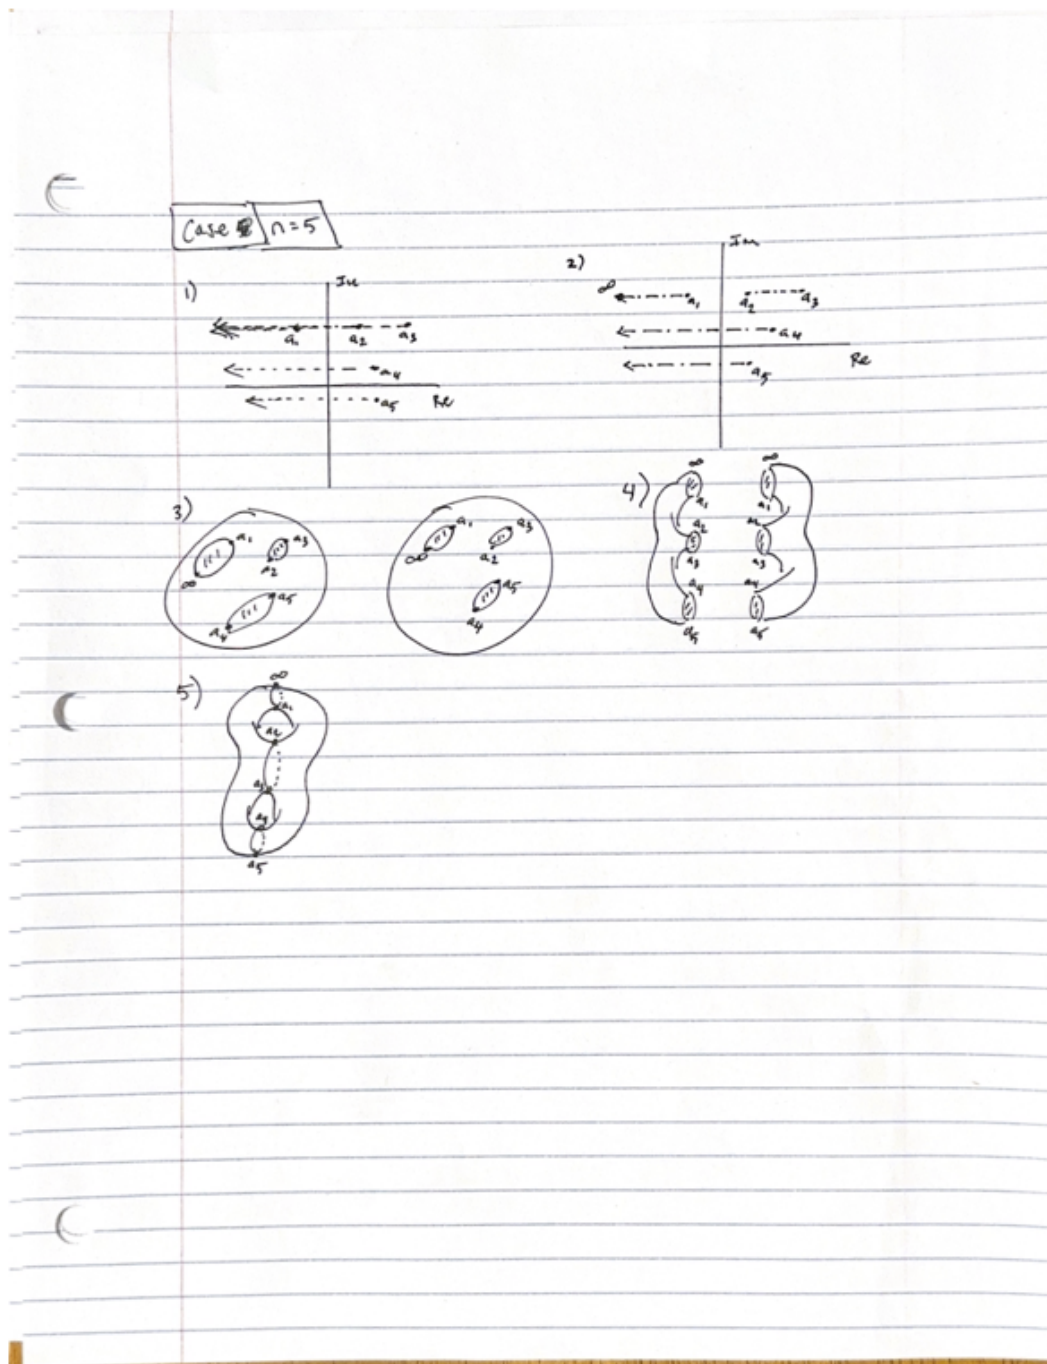 Case n=5
1) Im
a₁ a₂ a₃
a₄
a₅ Re
2) Im
∞ a₁ a₂ a₃
a₄
Re
a₅
3)
a₁ a₃
a₂
∞
a₅
a₄
a₁ a₃
∞ a₂
a₅
a₄
4) ∞ ∞
a₁ a₁
a₂ a₂
a₃ a₃
a₄ a₄
a₅ a₅
5) ∞
a₁
a₂
a₃
a₄
a₅